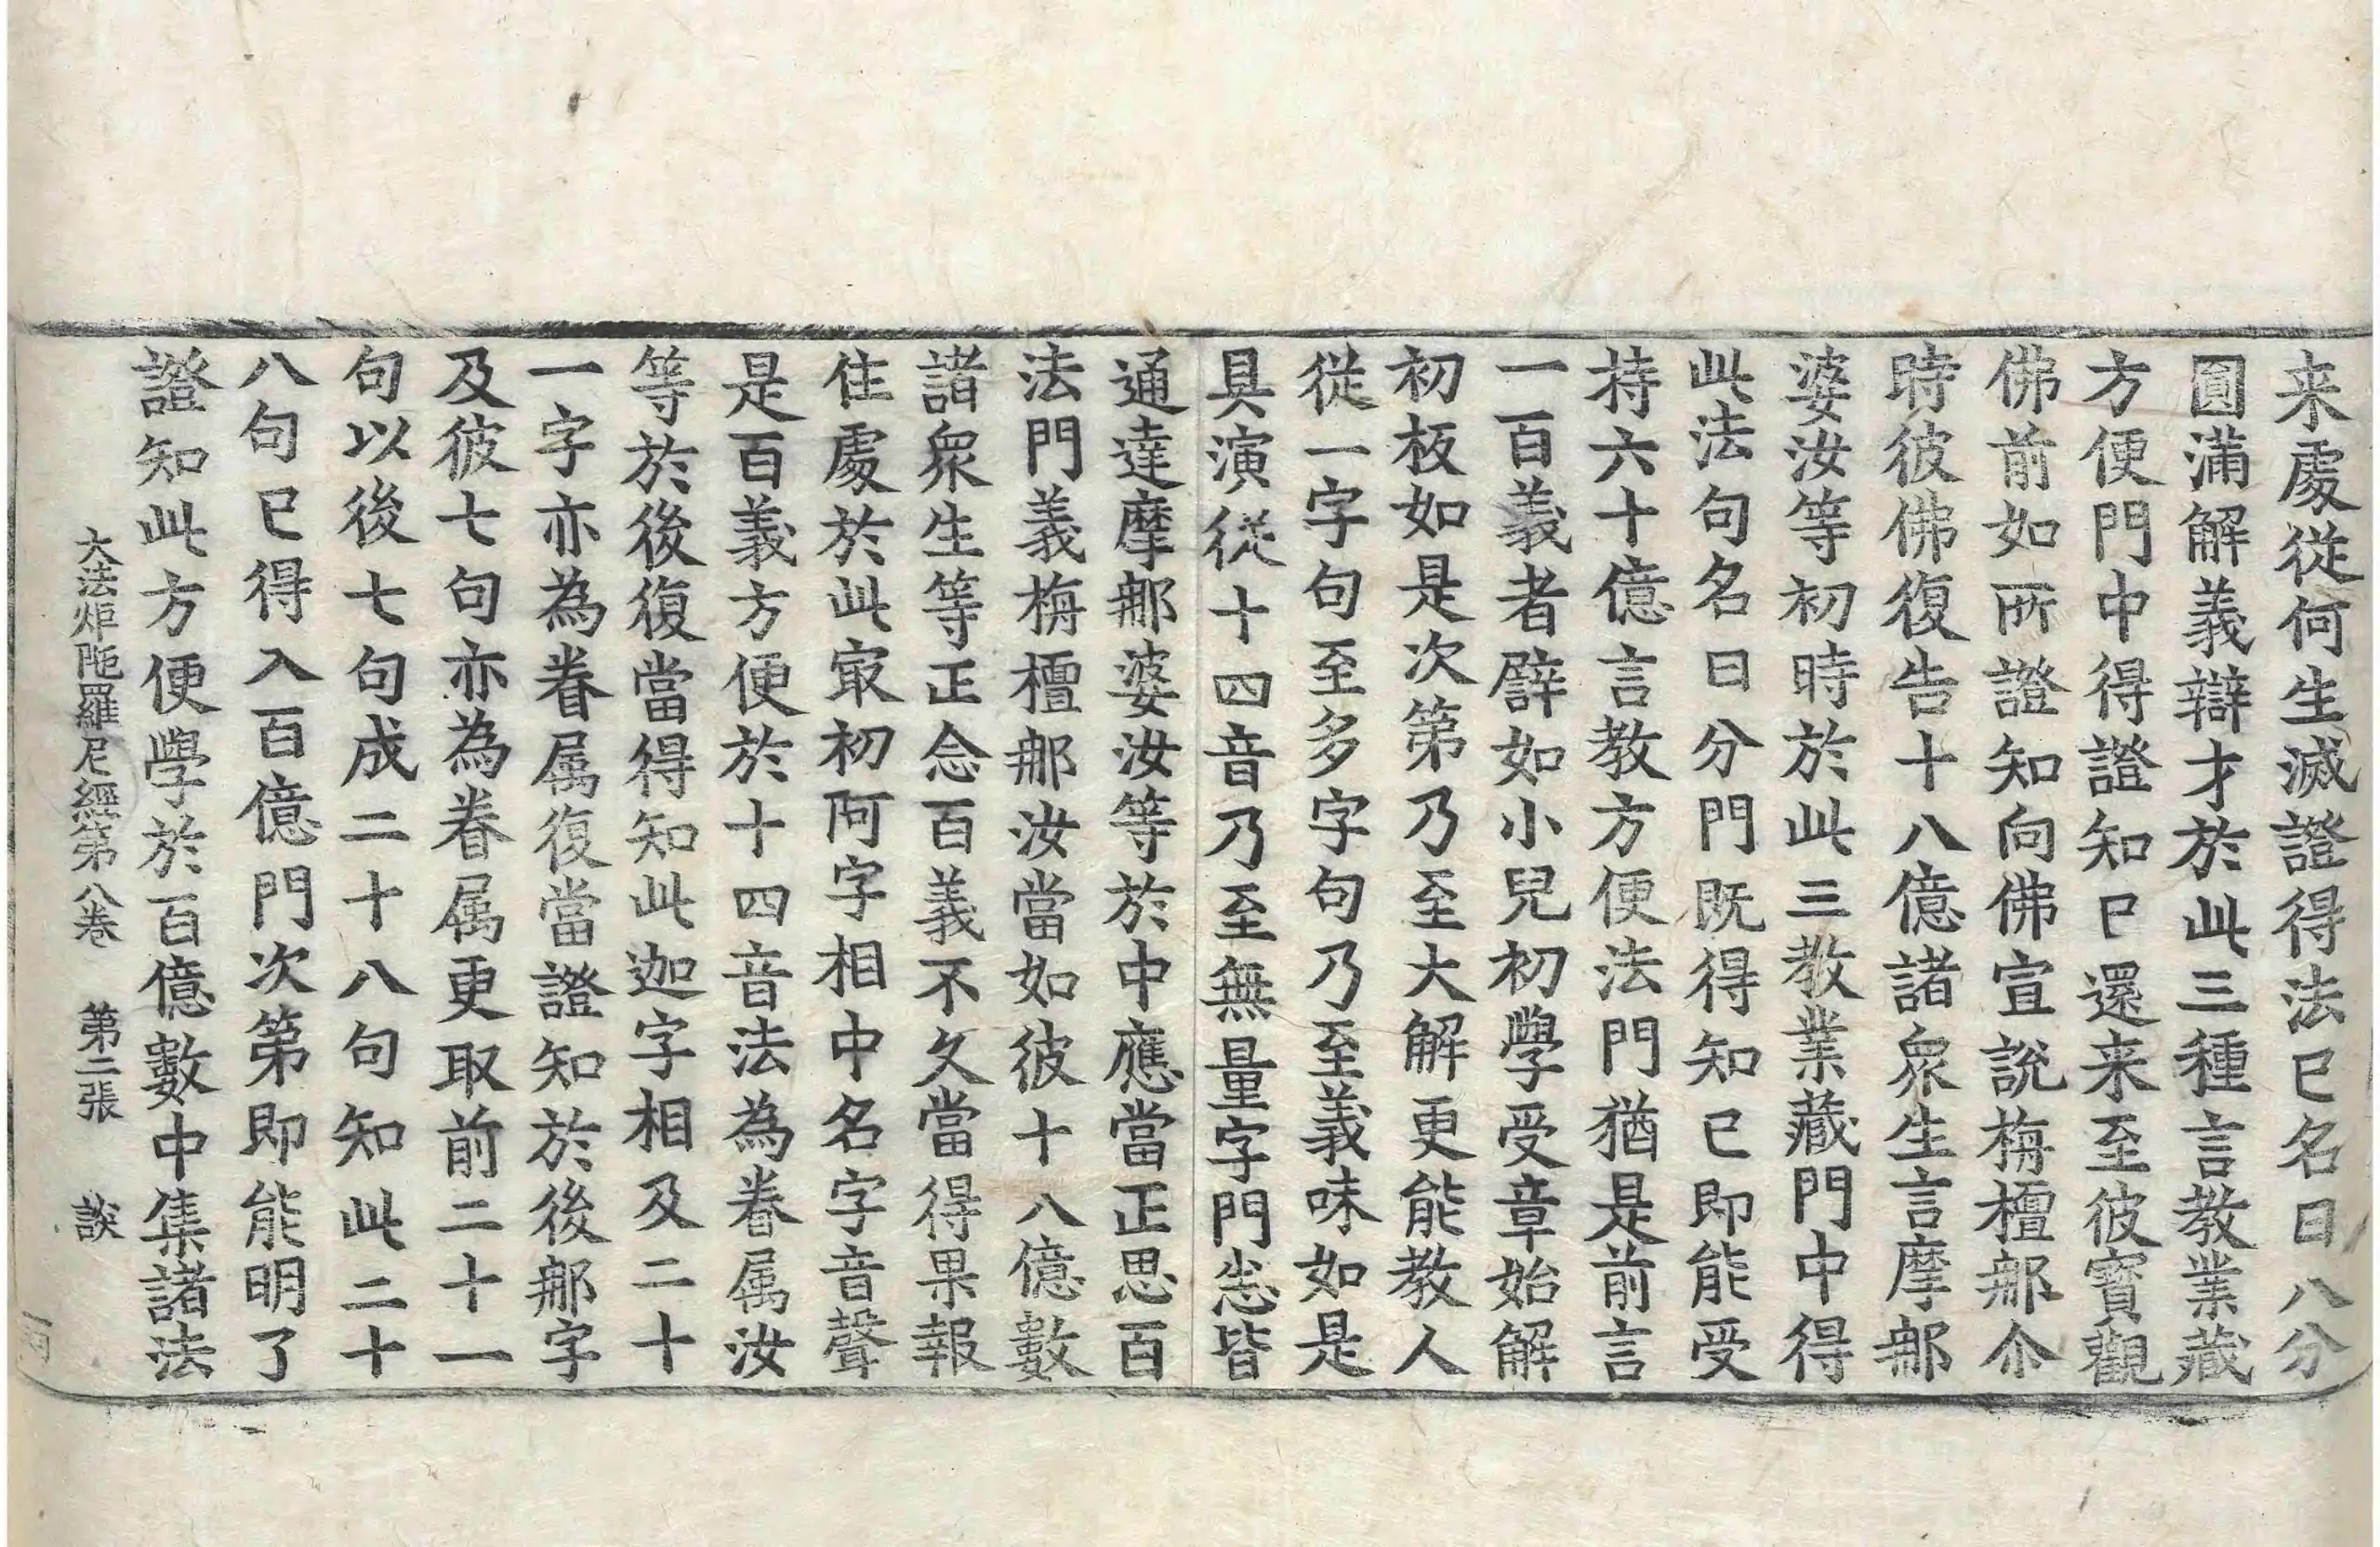 来處從何生滅證得法已名曰八分
圓滿解義辯才於此三種言教業藏
方便門中得證知已還来至彼寳觀
佛前如所證知向佛宣說栴檀郍尒
時彼佛復告十八億諸衆生言摩郍
婆汝等初時於此三教業藏門中得
此法句名曰分門既得知已即能受
持六十億言教方便法門猶是前言
一百義者譬如小兒初學受章始解
初板如是次第乃至大解更能教人
從一字句至多字句乃至義味如是
具演從十四音乃至無量字門悉皆
通達摩郍婆汝等於中應當正思百
法門義栴檀郍汝當如彼十八億數
諸衆生等正念百義不久當得果報
住處於此㝡初阿字相中名字音聲
是百義方便於十四音法為眷属汝
等於後復當得知此迦字相及二十
一字亦為眷属復當證知於後郍字
及彼七句亦為眷属更取前二十一
句以後七句成二十八句知此二十
八句已得入百億門次第即能明了
證知此方便學於百億數中集諸法
大法炬陁羅尼經第八卷　第二張　談